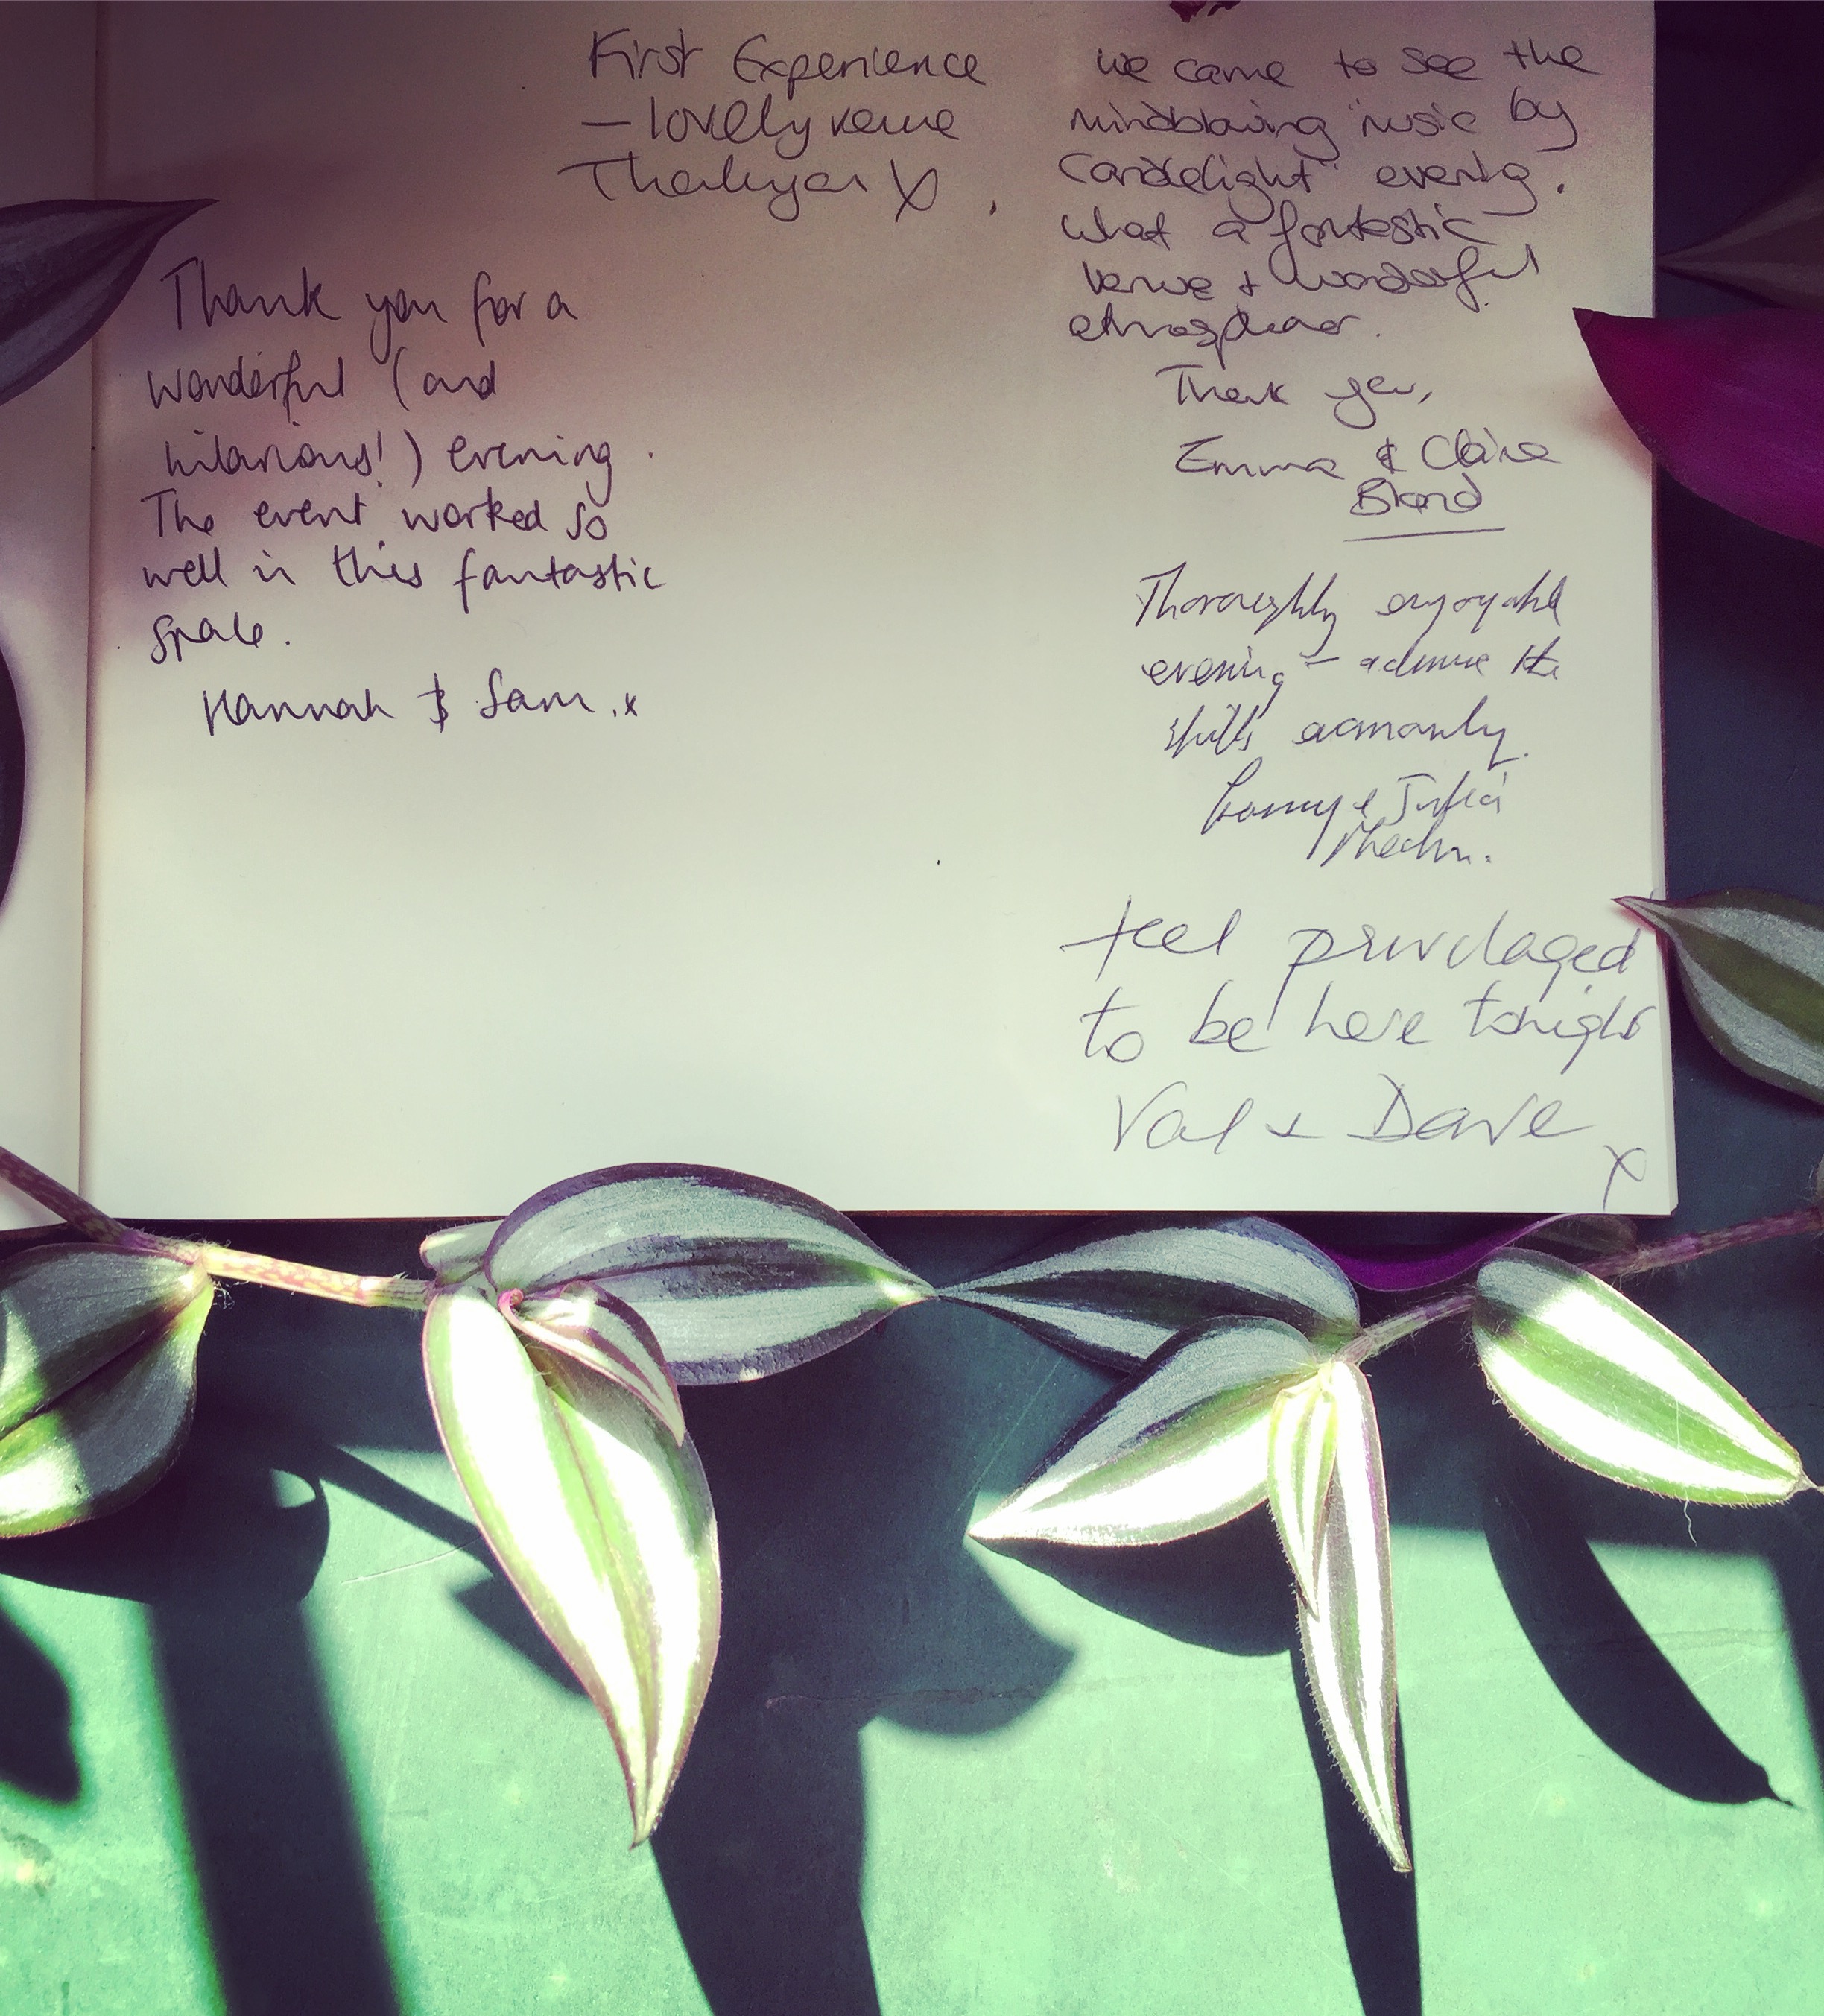 First Experience
— lovely venue
Thankyou X
Thank you for a
wonderful (and
hilarious!) evening.
The event worked so
well in this fantastic
space.
Hannah & Sam .x
we came to see the
mindblowing "music by
Candlelight" evening.
What a fantastic
venue + wonderful
atmosphere.
Thank you,
Emma & Claire
Bland
Thoroughly enjoyable
evening - admire the
skills
& Julia
feel privelaged
to be here tonight
Val + Dave
x